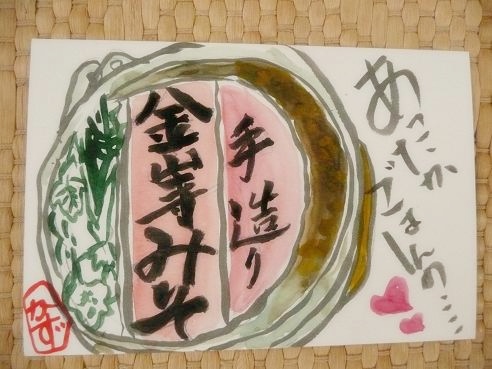 あったか
ごはんの....
手造り
金峯みそ
かず